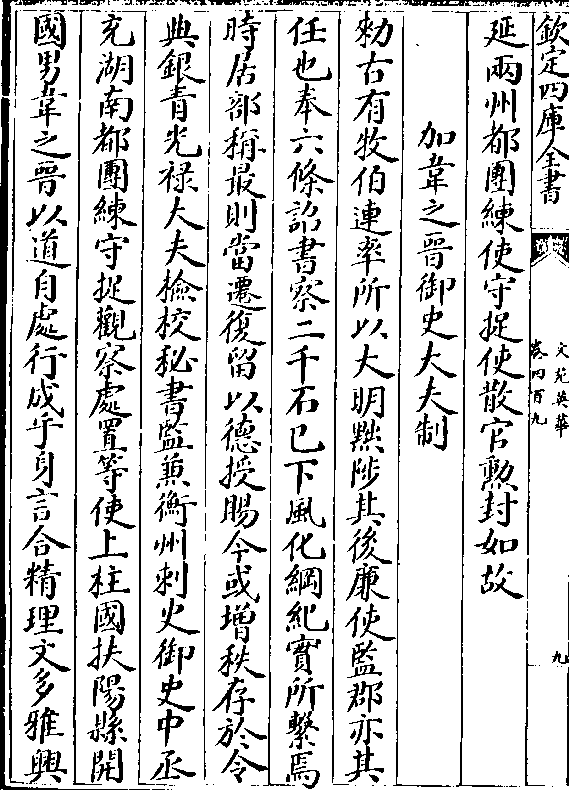 欽定四庫全書
文苑英華
卷四百九
九
延兩州都團練使守捉使散官勲封如故
加韋之晉御史大夫制
勅古有牧伯連率所以大明黜陟其後廉使監郡亦其
任也奉六條詔書察二千石已下風化綱紀實所繫焉
時居部稱最則當遷復留以德授賜今或增秩存於令
典銀青光禄大夫檢校秘書監兼衡州刺史御史中丞
充湖南都團練守捉觀察處置等使上柱國扶陽縣開
國男韋之晉以道自處行成乎身言合精理文多雅興